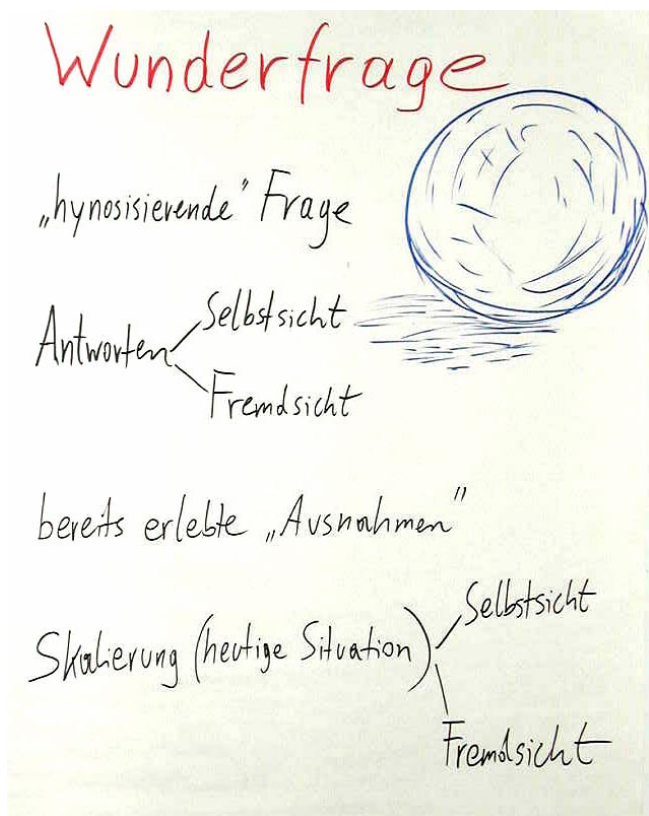 Wunderfrage
„hynosisierende“ Frage
Antworten
Selbstsicht
Fremdsicht
bereits erlebte „Ausnahmen“
Skalierung (heutige Situation)
Selbstsicht
Fremdsicht